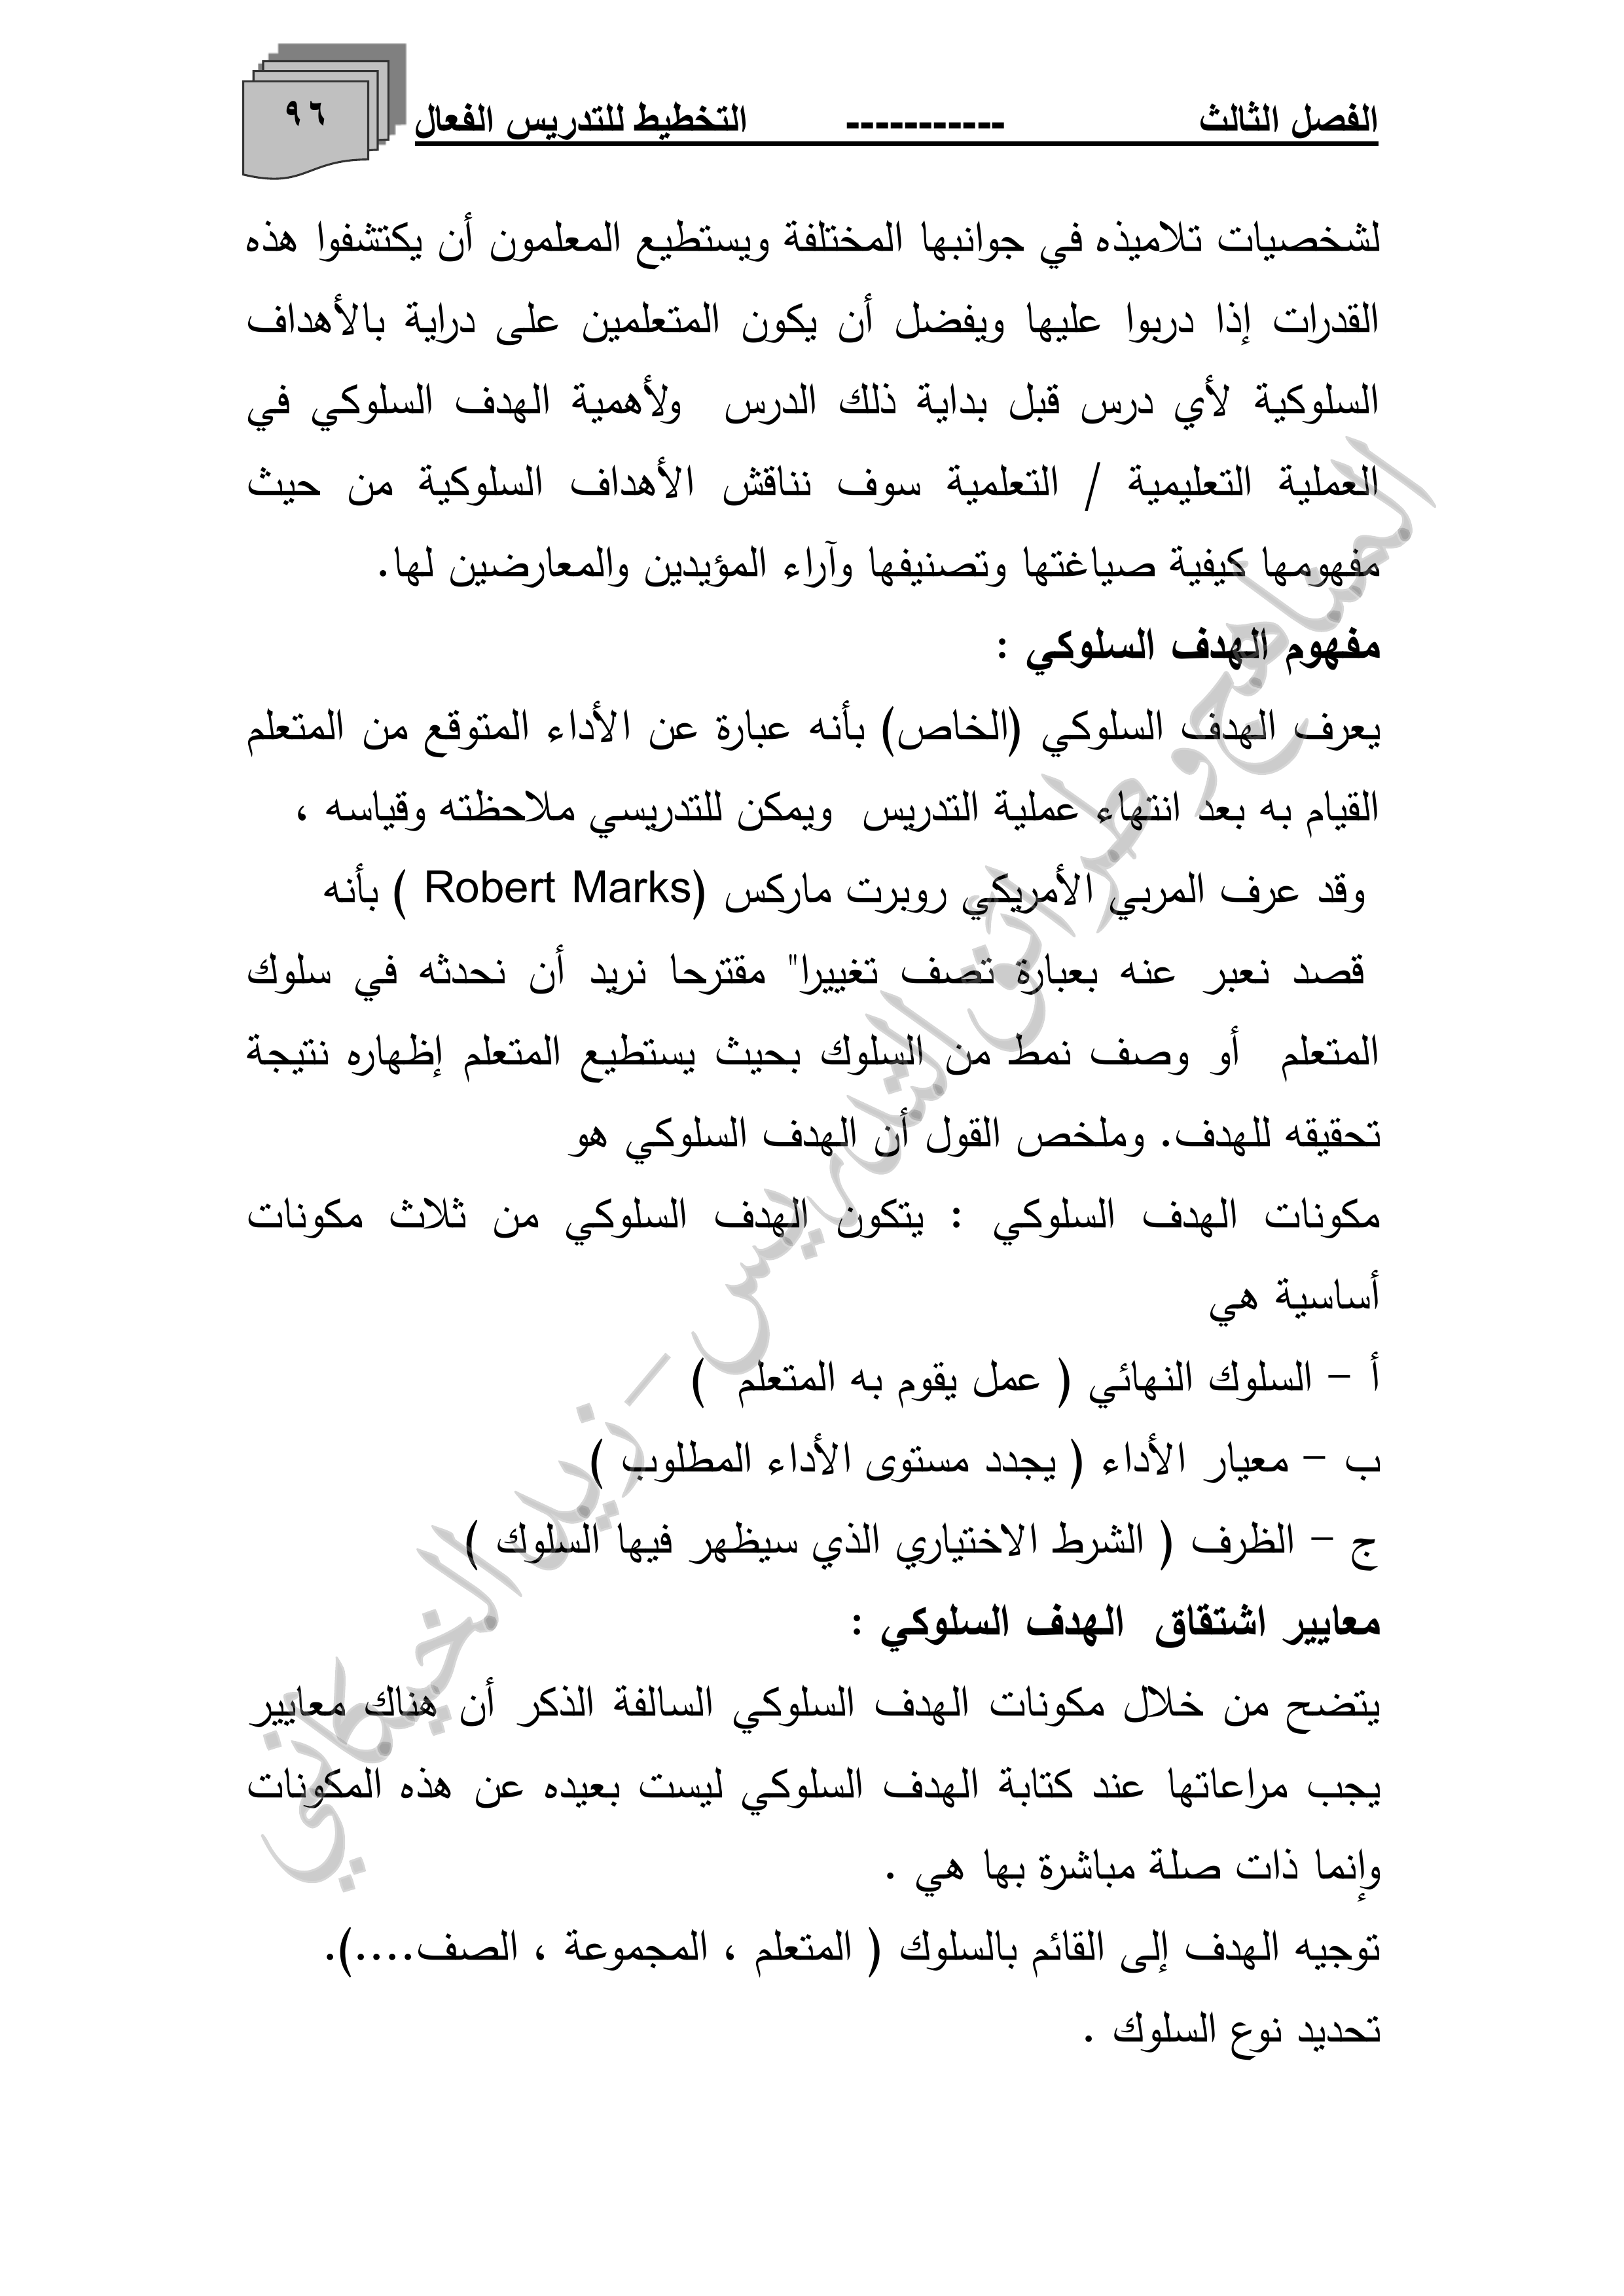 الفصل الثالث ----------- التخطيط للتدريس الفعال
٩٦
لشخصيات تلاميذه في جوانبها المختلفة ويستطيع المعلمون أن يكتشفوا هذه
القدرات إذا دربوا عليها ويفضل أن يكون المتعلمين على دراية بالأهداف
السلوكية لأي درس قبل بداية ذلك الدرس ولأهمية الهدف السلوكي في
العملية التعليمية / التعلمية سوف نناقش الأهداف السلوكية من حيث
مفهومها كيفية صياغتها وتصنيفها وآراء المؤيدين والمعارضين لها.
مفهوم الهدف السلوكي :
يعرف الهدف السلوكي (الخاص) بأنه عبارة عن الأداء المتوقع من المتعلم
القيام به بعد انتهاء عملية التدريس ويمكن للتدريسي ملاحظته وقياسه ،
وقد عرف المربي الأمريكي روبرت ماركس (Robert Marks ) بأنه
قصد نعبر عنه بعبارة تصف تغييرا" مقترحا نريد أن نحدثه في سلوك
المتعلم أو وصف نمط من السلوك بحيث يستطيع المتعلم إظهاره نتيجة
تحقيقه للهدف. وملخص القول أن الهدف السلوكي هو
مكونات الهدف السلوكي : يتكون الهدف السلوكي من ثلاث مكونات
أساسية هي
أ – السلوك النهائي ( عمل يقوم به المتعلم )
ب – معيار الأداء ( يجدد مستوى الأداء المطلوب )
ج – الظرف ( الشرط الاختياري الذي سيظهر فيها السلوك )
معايير اشتقاق الهدف السلوكي :
يتضح من خلال مكونات الهدف السلوكي السالفة الذكر أن هناك معايير
يجب مراعاتها عند كتابة الهدف السلوكي ليست بعيده عن هذه المكونات
وإنما ذات صلة مباشرة بها هي .
توجيه الهدف إلى القائم بالسلوك ( المتعلم ، المجموعة ، الصف....).
تحديد نوع السلوك .
المناهج وطرائق التدريس – زيد الخيكاني